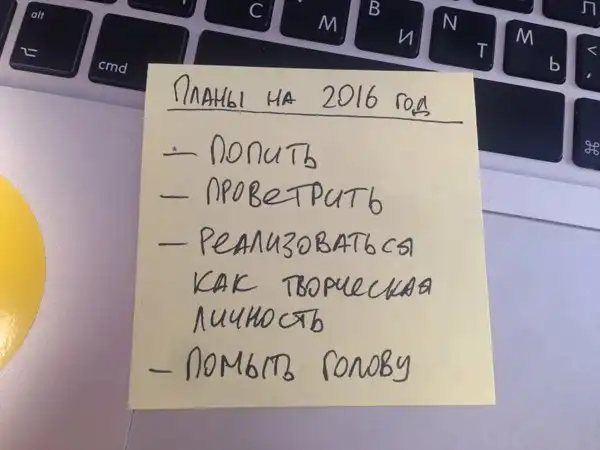 alt
⌥
cmd
C
M
B
И
N
T
M
Ь
<
⌘
Планы на 2016 год
– попить
– проветрить
– реализоваться
как творческая
личность
– помыть голову